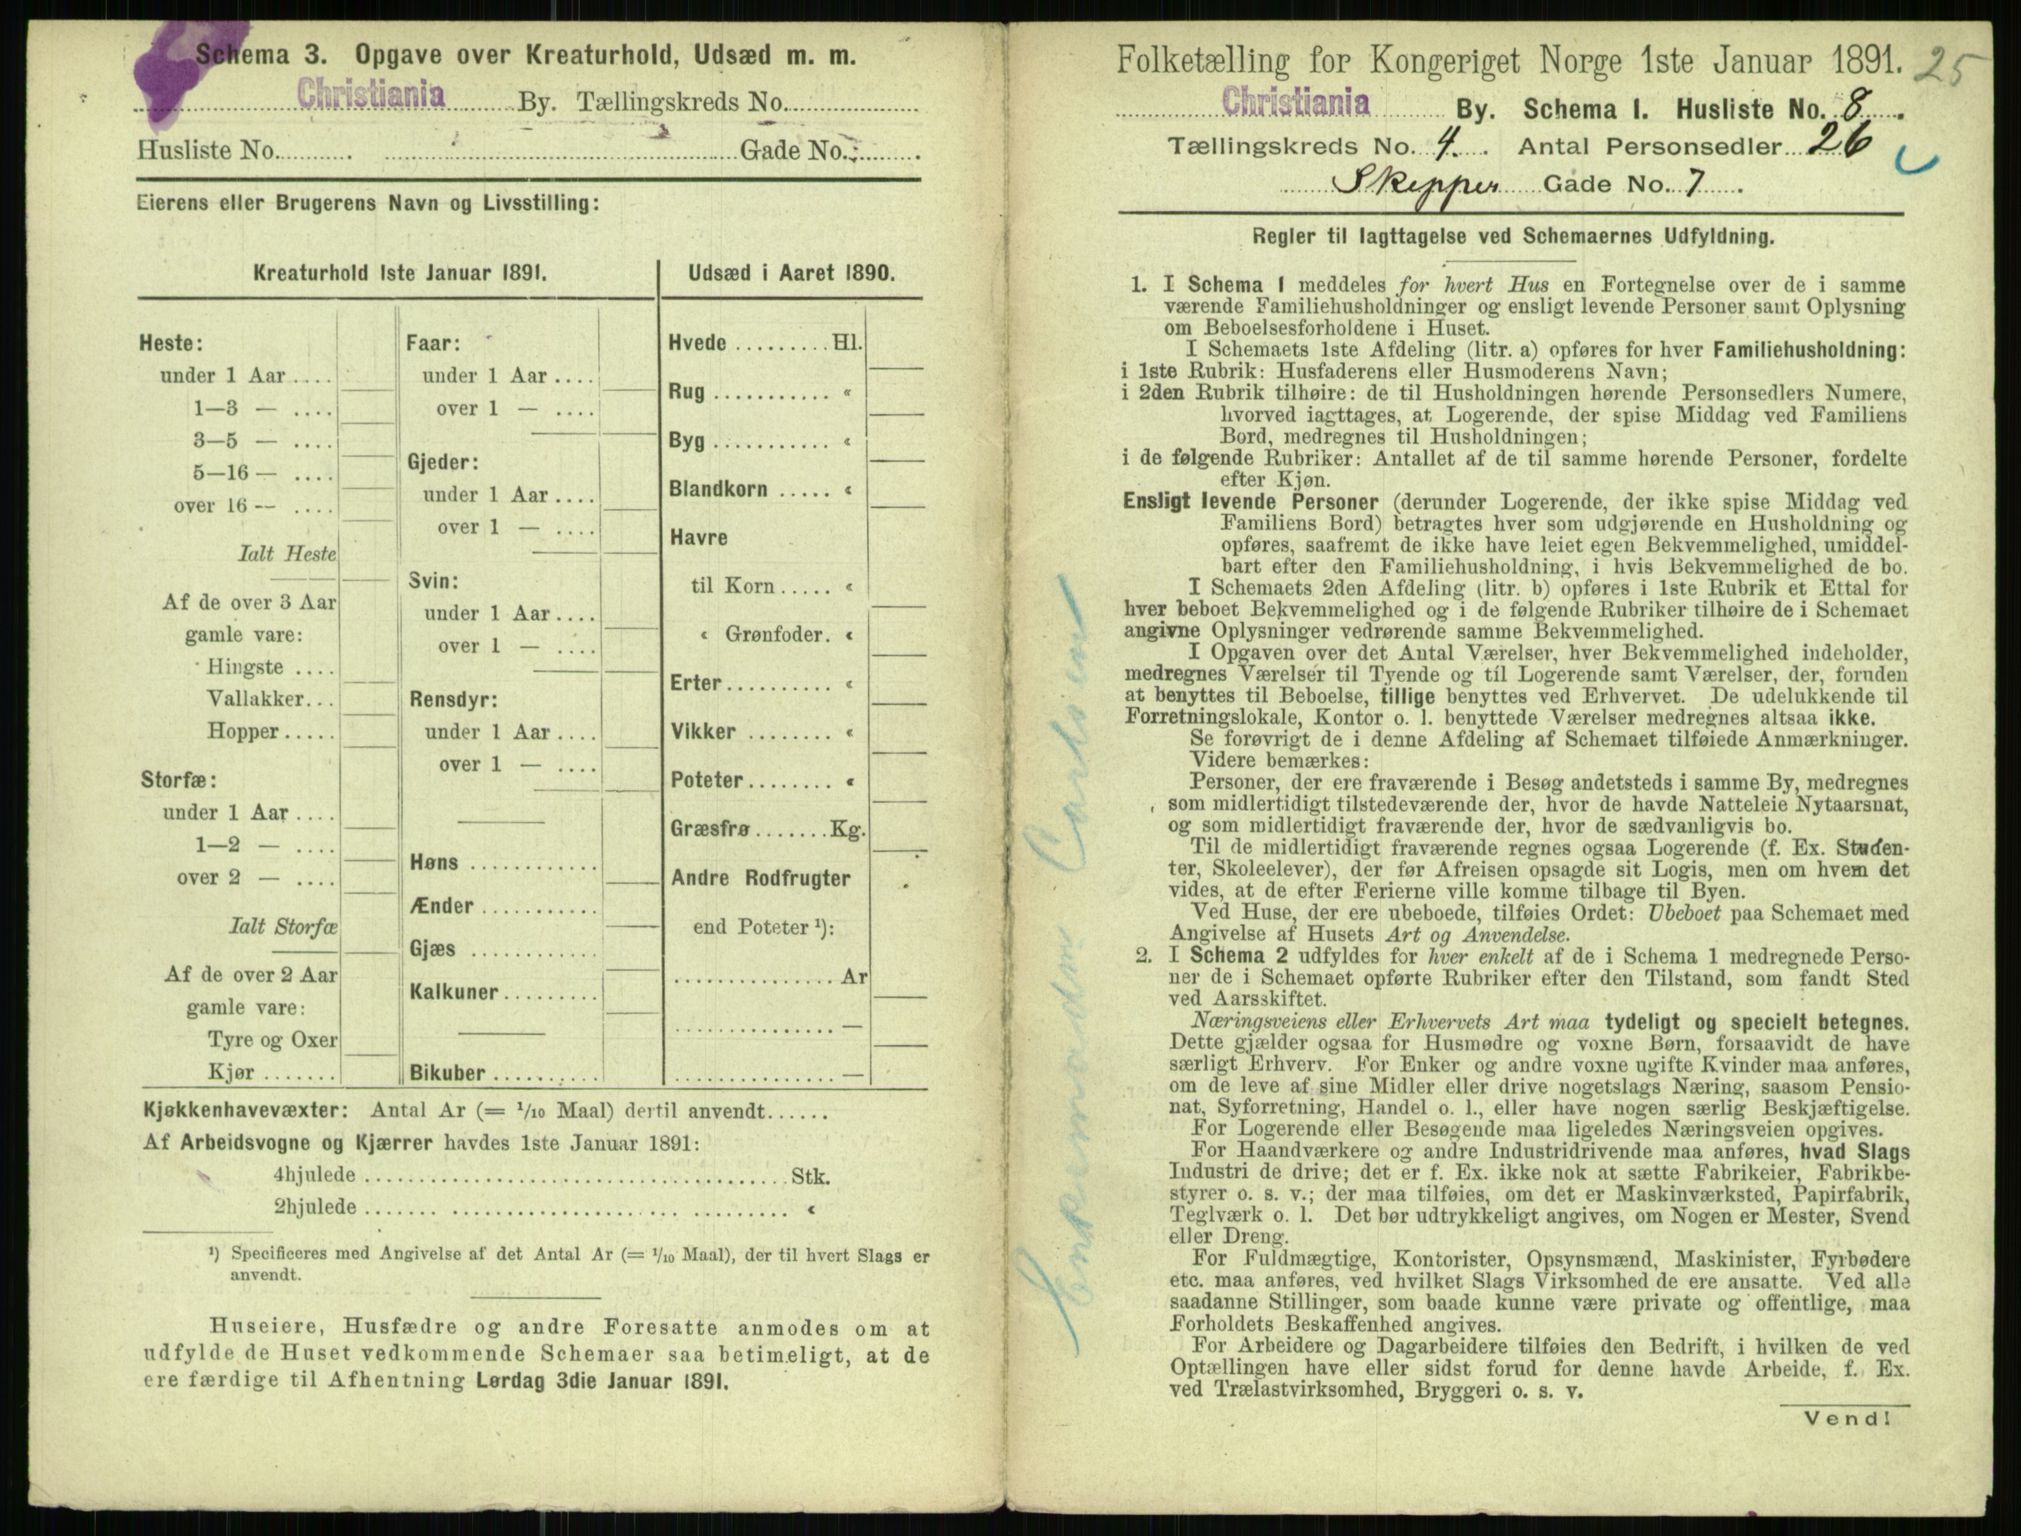 Schema 3. Opgave over Kreaturhold, Udsæd m. m.
Christiania By. Tællingskreds No.
Husliste No. Gade No.
Eierens eller Brugerens Navn og Livsstilling:
Kreaturhold 1ste Januar 1891.
Heste:
under 1 Aar
1—3 —
3—5 —
5—16 —
over 16 —
Ialt Heste
Af de over 3 Aar
gamle vare:
Hingste
Vallakker
Hopper
Storfæ:
under 1 Aar
1—2 —
over 2 —
Ialt Storfæ
Af de over 2 Aar
gamle vare:
Tyre og Oxer
Kjør
Faar:
under 1 Aar
over 1 —
Gjeder:
under 1 Aar
over 1 —
Svin:
under 1 Aar
over 1 —
Rensdyr:
under 1 Aar
over 1 —
Høns
Ænder
Gjæs
Kalkuner
Bikuber
Udsæd i Aaret 1890.
Hvede Hl.
Rug «
Byg «
Blandkorn «
Havre
til Korn «
« Grønfoder «
Erter «
Vikker «
Poteter «
Græsfrø Kg.
Andre Rodfrugter
end Poteter ¹):
Ar
—
—
Kjøkkenhavevæxter: Antal Ar (= 1/10 Maal) dertil anvendt
Af Arbeidsvogne og Kjærrer havdes 1ste Januar 1891:
4hjulede Stk.
2hjulede «
¹) Specificeres med Angivelse af det Antal Ar (= 1/10 Maal), der til hvert Slags er
anvendt.
Huseiere, Husfædre og andre Foresatte anmodes om at
udfylde de Huset vedkommende Schemaer saa betimeligt, at de
ere færdige til Afhentning Lørdag 3die Januar 1891.
Enkemadm Carlsen
Folketælling for Kongeriget Norge 1ste Januar 1891. 25
Christiania By. Schema 1. Husliste No. 8.
Tællingskreds No. 4. Antal Personsedler 26
Skipper Gade No. 7.
Regler til Iagttagelse ved Schemaernes Udfyldning.
1. I Schema 1 meddeles for hvert Hus en Fortegnelse over de i samme
værende Familiehusholdninger og ensligt levende Personer samt Oplysning
om Beboelsesforholdene i Huset.
I Schemaets 1ste Afdeling (litr. a) opføres for hver Familiehusholdning:
i 1ste Rubrik: Husfaderens eller Husmoderens Navn;
i 2den Rubrik tilhøire: de til Husholdningen hørende Personsedlers Numere,
hvorved iagttages, at Logerende, der spise Middag ved Familiens
Bord, medregnes til Husholdningen;
i de følgende Rubriker: Antallet af de til samme hørende Personer, fordelte
efter Kjøn.
Ensligt levende Personer (derunder Logerende, der ikke spise Middag ved
Familiens Bord) betragtes hver som udgjørende en Husholdning og
opføres, saafremt de ikke have leiet egen Bekvemmelighed, umiddel-
bart efter den Familiehusholdning, i hvis Bekvemmelighed de bo.
I Schemaets 2den Afdeling (litr. b) opføres i 1ste Rubrik et Ettal for
hver beboet Bekvemmelighed og i de følgende Rubriker tilhøire de i Schemaet
angivne Oplysninger vedrørende samme Bekvemmelighed.
I Opgaven over det Antal Værelser, hver Bekvemmelighed indeholder,
medregnes Værelser til Tyende og til Logerende samt Værelser, der, foruden
at benyttes til Beboelse, tillige benyttes ved Erhvervet. De udelukkende til
Forretningslokale, Kontor o. l. benyttede Værelser medregnes altsaa ikke.
Se forøvrigt de i denne Afdeling af Schemaet tilføiede Anmærkninger.
Videre bemærkes:
Personer, der ere fraværende i Besøg andetsteds i samme By, medregnes
som midlertidigt tilstedeværende der, hvor de havde Natteleie Nytaarsnat,
og som midlertidigt fraværende der, hvor de sædvanligvis bo.
Til de midlertidigt fraværende regnes ogsaa Logerende (f. Ex. Studen-
ter, Skoleelever), der før Afreisen opsagde sit Logis, men om hvem det
vides, at de efter Ferierne ville komme tilbage til Byen.
Ved Huse, der ere ubeboede, tilføies Ordet: Ubeboet paa Schemaet med
Angivelse af Husets Art og Anvendelse.
2. I Schema 2 udfyldes for hver enkelt af de i Schema 1 medregnede Perso-
ner de i Schemaet opførte Rubriker efter den Tilstand, som fandt Sted
ved Aarsskiftet.
Næringsveiens eller Erhvervets Art maa tydeligt og specielt betegnes.
Dette gjælder ogsaa for Husmødre og voxne Børn, forsaavidt de have
særligt Erhverv. For Enker og andre voxne ugifte Kvinder maa anføres,
om de leve af sine Midler eller drive nogetslags Næring, saasom Pensio-
nat, Syforretning, Handel o. l., eller have nogen særlig Beskjæftigelse.
For Logerende eller Besøgende maa ligeledes Næringsveien opgives.
For Haandværkere og andre Industridrivende maa anføres, hvad Slags
Industri de drive; det er f. Ex. ikke nok at sætte Fabrikeier, Fabrikbe-
styrer o. s. v.; der maa tilføies, om det er Maskinværksted, Papirfabrik,
Teglværk o. l. Det bør udtrykkeligt angives, om Nogen er Mester, Svend
eller Dreng.
For Fuldmægtige, Kontorister, Opsynsmænd, Maskinister, Fyrbødere
etc. maa anføres, ved hvilket Slags Virksomhed de ere ansatte. Ved alle
saadanne Stillinger, som baade kunne være private og offentlige, maa
Forholdets Beskaffenhed angives.
For Arbeidere og Dagarbeidere tilføies den Bedrift, i hvilken de ved
Optællingen have eller sidst forud for denne havde Arbeide, f. Ex.
ved Trælastvirksomhed, Bryggeri o. s. v.
Vend!